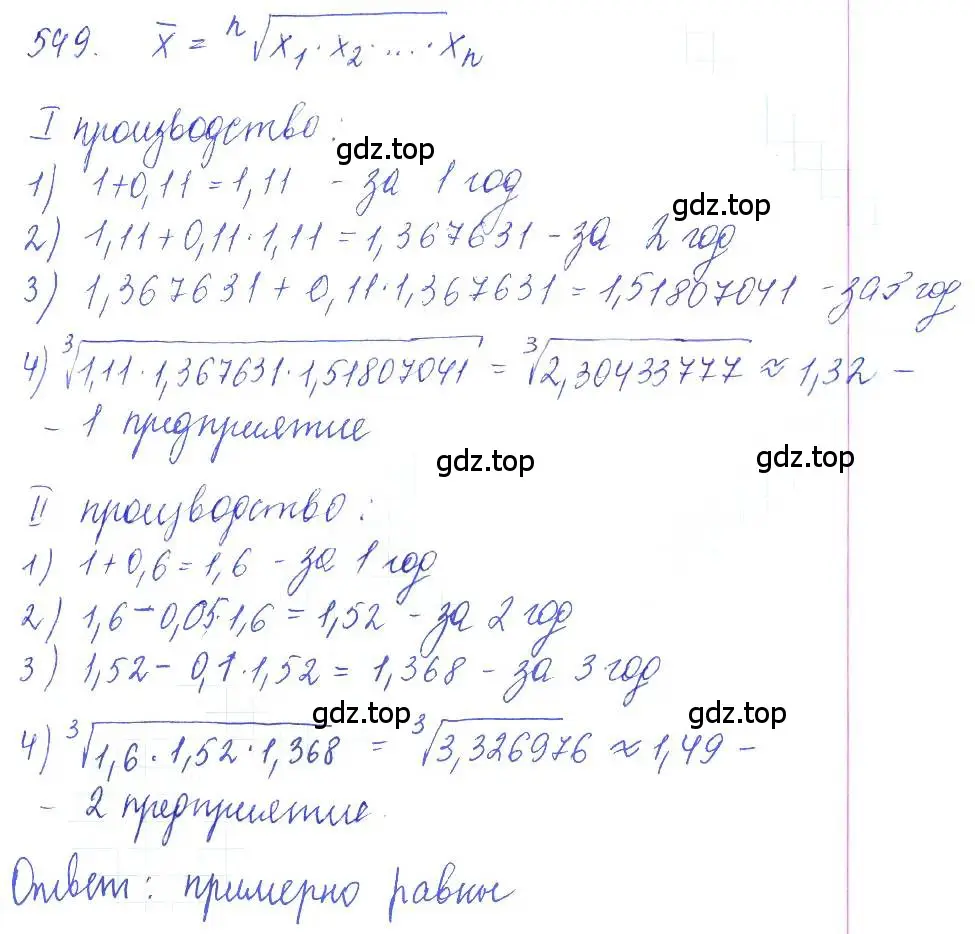 549. x̄ = ⁿ√(x₁ · x₂ · ... · xₙ)
I производство:
gdz.top
1) 1+0,11 = 1,11 - за 1 год
gdz.top
2) 1,11+0,11·1,11 = 1,367631 - за 2 год
3) 1,367631 + 0,11·1,367631 = 1,51807041 - за 3 год
4) ³√(1,11 · 1,367631 · 1,51807041) = ³√(2,30433777) ≈ 1,32 -
- 1 предприятие
gdz.top gdz.top
II производство:
1) 1+0,6 = 1,6 - за 1 год
2) 1,6 - 0,05·1,6 = 1,52 - за 2 год
3) 1,52 - 0,1·1,52 = 1,368 - за 3 год
gdz.top gdz.top
4) ³√(1,6 · 1,52 · 1,368) = ³√(3,326976) ≈ 1,49 -
- 2 предприятие
Ответ: примерно равны